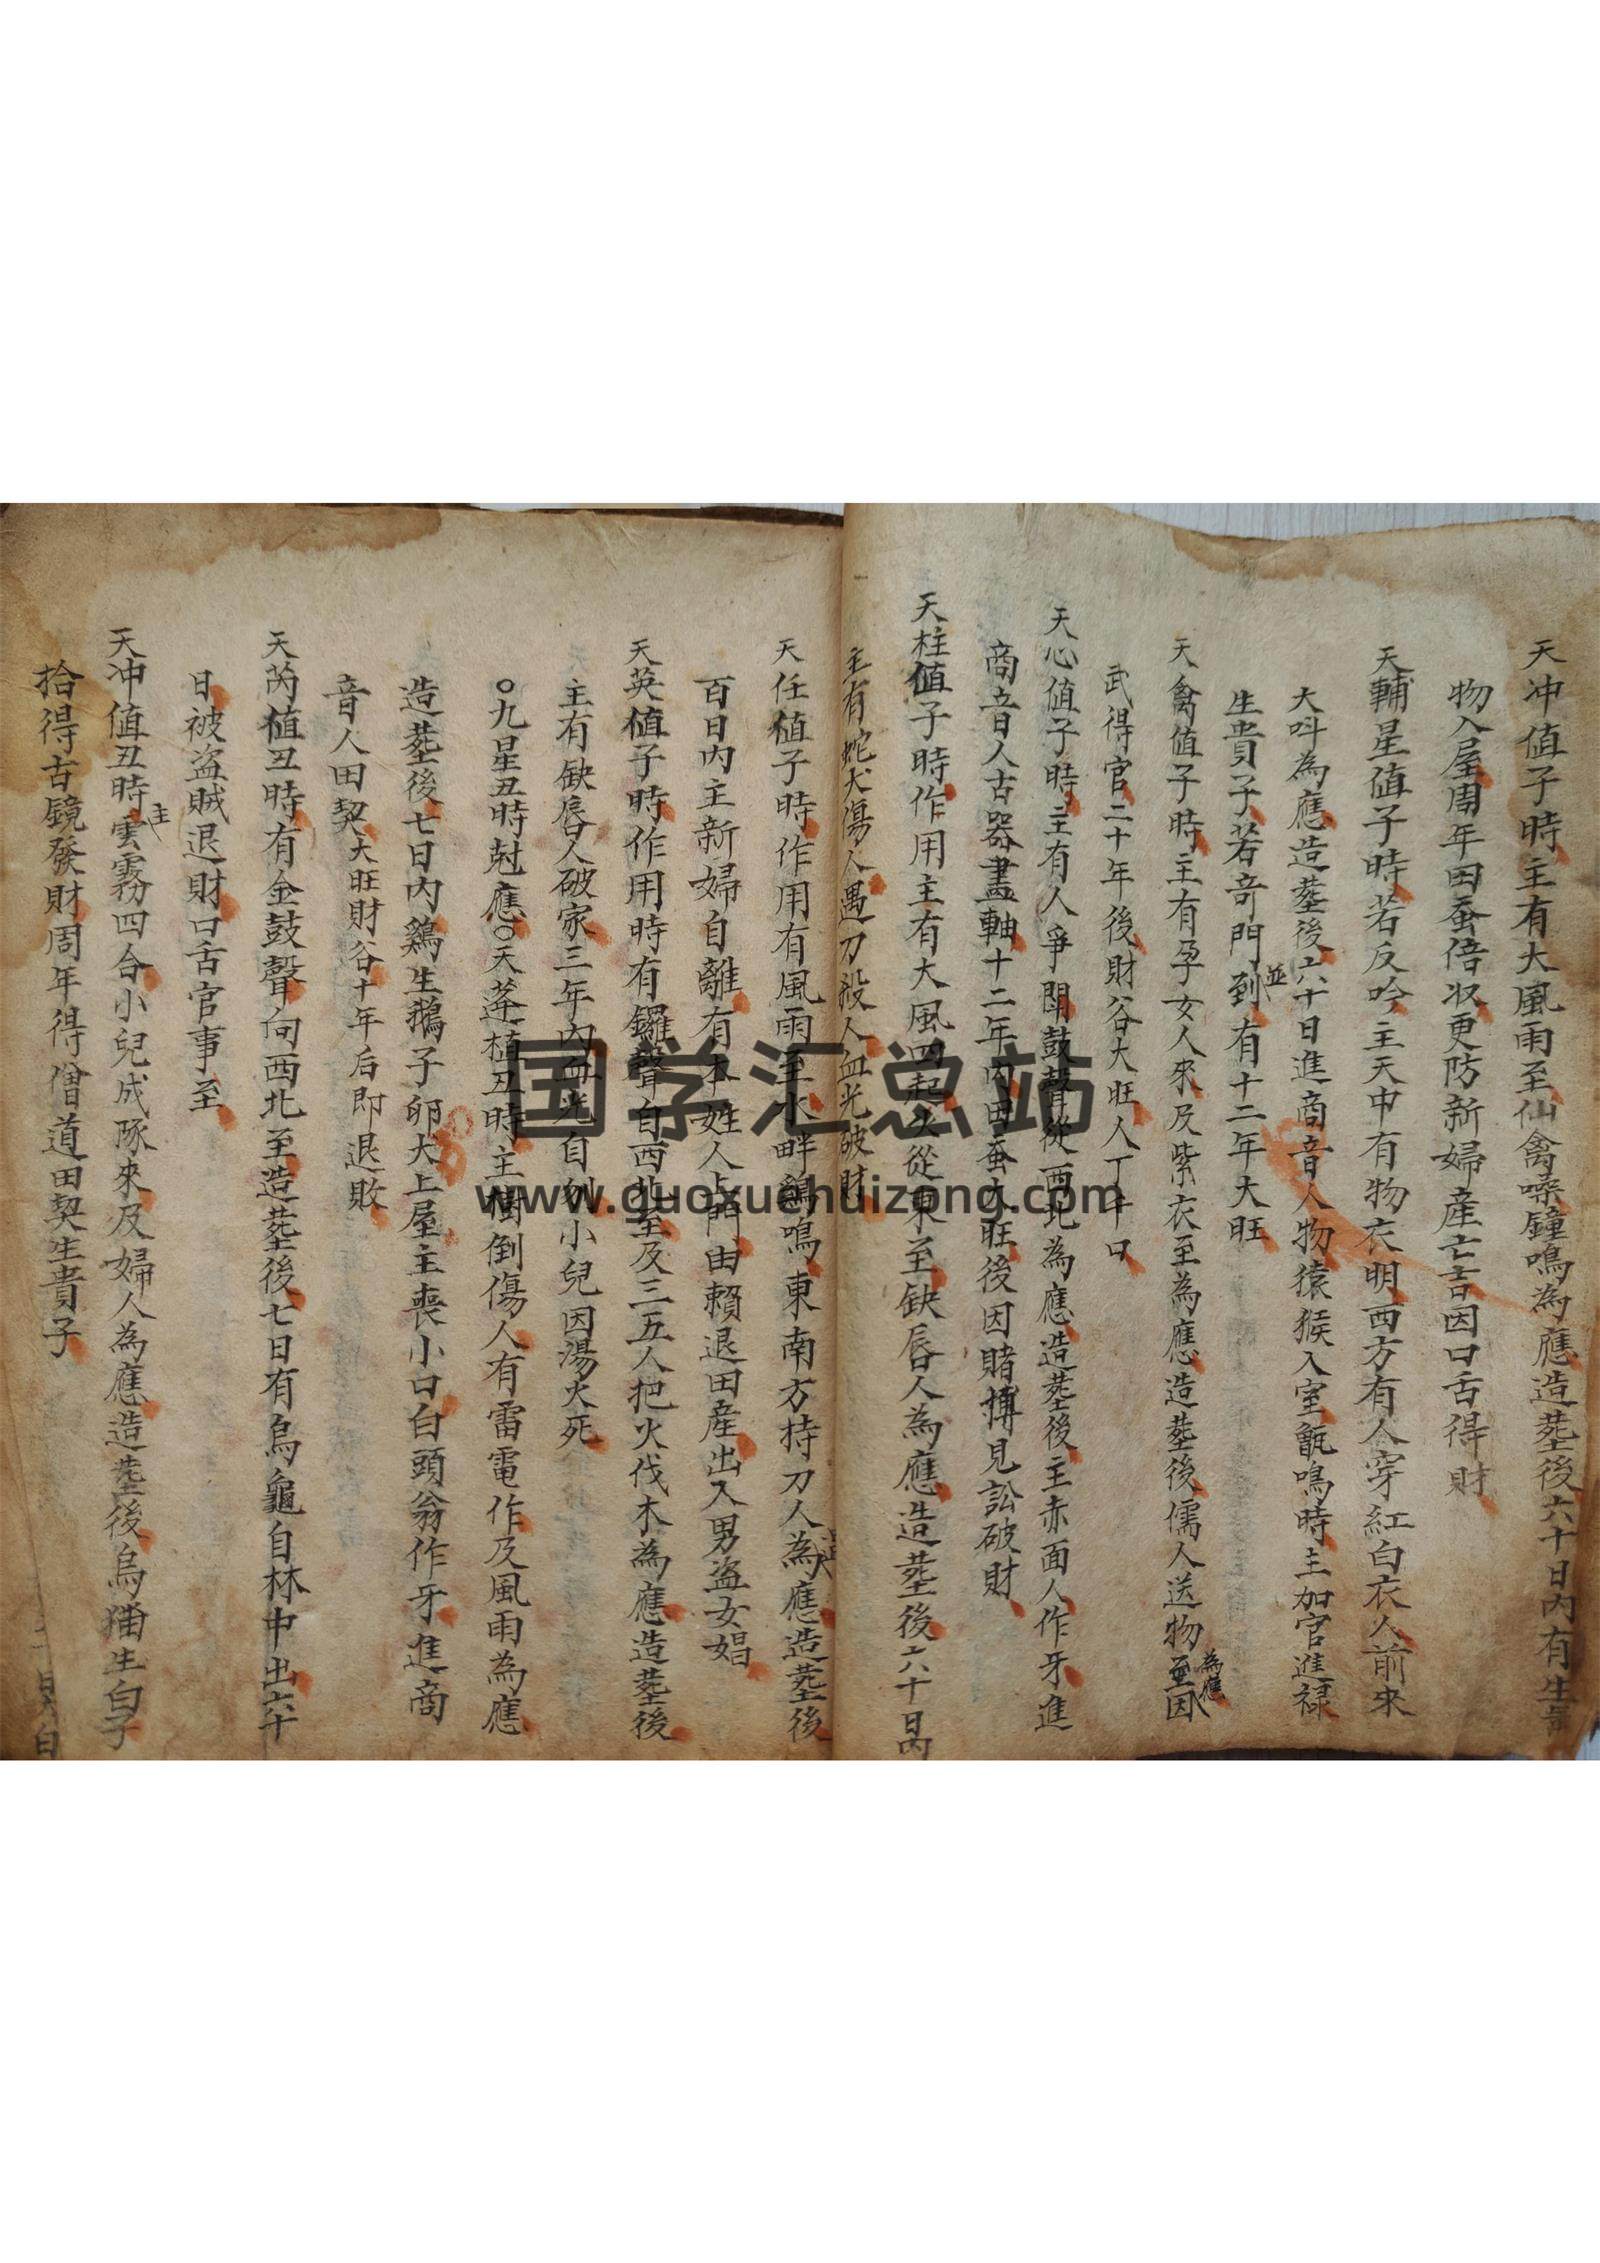 天冲值子時主有大風雨至仙禽噪鐘鳴為應造塟後六十日內有生氣
物入屋周年田蚕倍收更防新婦產亡吉因口舌得財
天輔星值子時若反吟主天中有物衣明西方有人穿紅白衣人前來
大呌為應造塟後六十日進商音人物猿猴入室甑鳴時主加官進祿
生貴子若竒門並到有十二年大旺
天禽值子時主有孕女人來及紫衣至為應造塟後儒人送物至為應因
武得官二十年後財谷大旺人丁千口
天心值子時主有人爭鬧鼓聲從西北為應造塟後主赤面人作牙進
商音人古器畫軸十二年內田蚕大旺後因賭博見訟破財
天柱值子時作用主有大風四起火從東至缺唇人為應造塟後六十日內
主有蛇犬傷人遇刀殺人血光破財
天任值子時作用有風雨至水畔鷄鳴東南方持刀人為應造塟後
百日內主新婦自離有本姓人上門由賴退田產出入男盜女娼
天英值子時作用時有鑼聲自西北至及三五人把火伐木為應造塟後
主有缺唇人破家三年內血光自刎小兒因湯火死
○九星丑時尅應○天蓬植丑時主樹倒傷人有雷電作及風雨為應
造塟後七日內鷄生鵝子卵犬上屋主喪小口白頭翁作牙進商
音人田契大旺財谷十年后即退敗
天芮值丑時有金鼓聲向西北至造塟後七日有烏龜自林中出六十
日被盜賊退財口舌官事至
天冲值丑時主雲霧四合小兒成隊來及婦人為應造塟後烏猫生白子
拾得古鏡發財周年得僧道田契生貴子
国学汇总站
www.guoxuehuizong.com